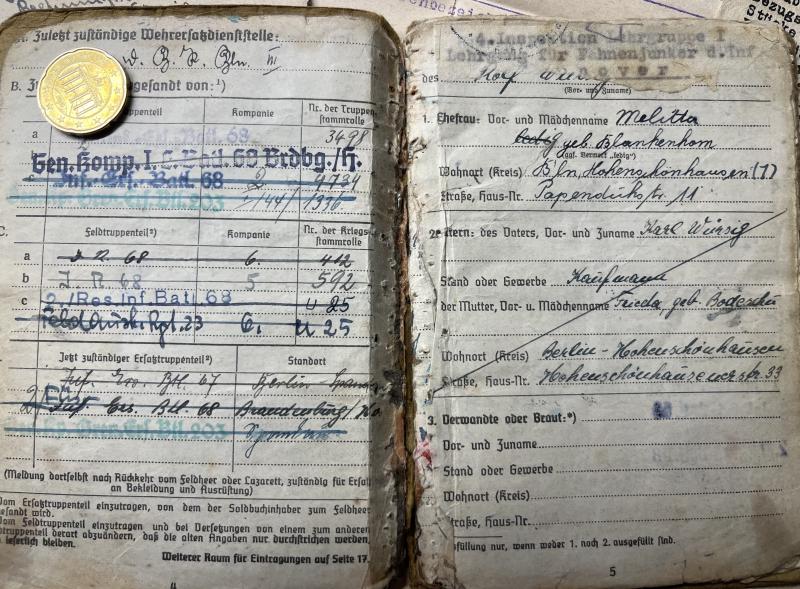 Zuletzt zuständige Wehrersatzdienststelle:
W. B. K. Bln. III
B. Zu gesandt von:¹)
Truppenteil Kompanie Nr. der Truppen-
stammrolle
a Batl. 68 3498
Gen. Komp. I. E. Batl. 68 Brdbg./H.
c Inf. Ers. Batl. 68 2 9734
203 1336
C. Feldtruppenteil²) Kompanie Nr. der Kriegs-
stammrolle
a I. R. 68 6. 412
b I. R. 68 5 592
c 2./Res. Inf. Batl. 68 u 25
Feldausb. Rgt. 23 6. u 25
Jetzt zuständiger Ersatztruppenteil²) Standort
Inf. Ers. Btl. 67 Berlin-Span
Inf. Ers. Btl. 68 Brandenburg
Btl. 203 Spandau
(Meldung dortselbst nach Rückkehr vom Feldheer oder Lazarett, zuständig für Ersatz
an Bekleidung und Ausrüstung)
Vom Ersatztruppenteil einzutragen, von dem der Soldbuchinhaber zum Feldheer
gesandt wird.
Vom Feldtruppenteil einzutragen und bei Versetzungen von einem zum anderen
truppenteil derart abzuändern, daß die alten Angaben nur durchstrichen werden,
leserlich bleiben.
Weiterer Raum für Eintragungen auf Seite 17.
4
4. Inspektion Lehrgruppe I
Lehrgang für Fahnenjunker d. Inf.
des Würsig
(Vor- und Zuname)
1. Ehefrau: Vor- und Mädchenname Melitta
ledig geb. Blankenhorn
(ggf. Vermerk „ledig")
Wohnort (Kreis) Bln. Hohenschönhausen (1)
Straße, Haus-Nr. Papendickstr. 11
2. Eltern: des Vaters, Vor- und Zuname Karl Würsig
Stand oder Gewerbe Kaufmann
der Mutter, Vor- u. Mädchenname Frieda, geb.
Wohnort (Kreis) Berlin-Hohenschönhausen
Straße, Haus-Nr. Hohenschönhauserstr. 33
3. Verwandte oder Braut:*)
Vor- und Zuname
Stand oder Gewerbe
Wohnort (Kreis)
Straße, Haus-Nr.
füllung nur, wenn weder 1. noch 2. ausgefüllt sind.
5